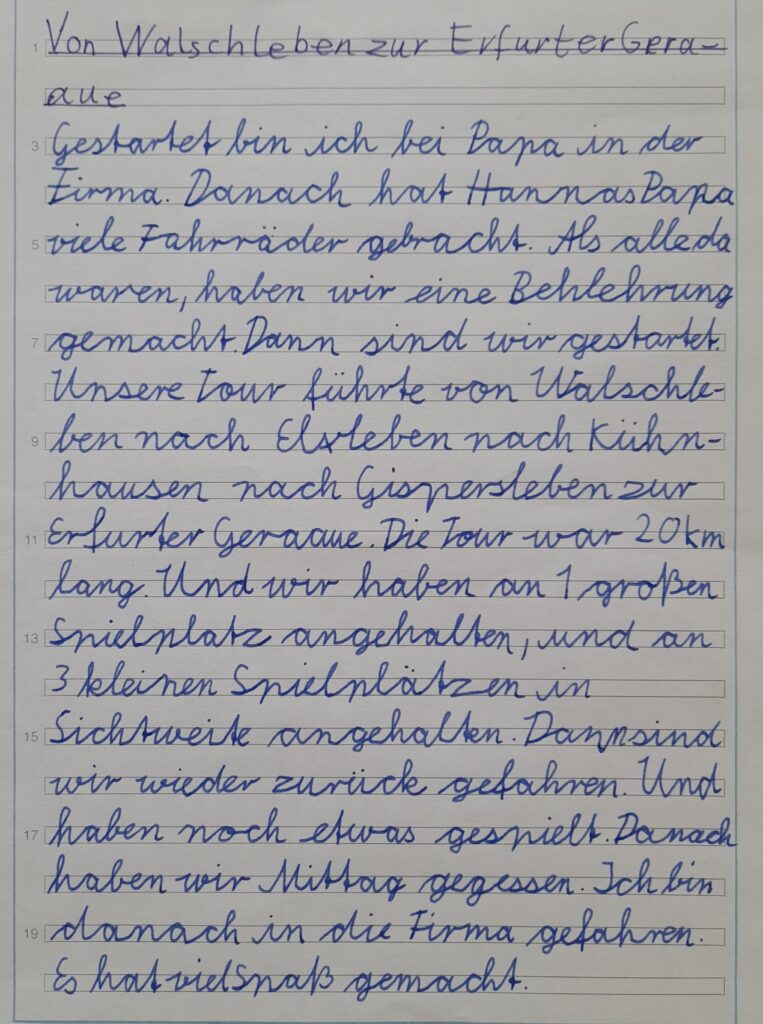 1 Von Walschleben zur Erfurter Gera-
aue
3 Gestartet bin ich bei Papa in der
Firma. Danach hat Hannas Papa
5 viele Fahrräder gebracht. Als alle da
waren, haben wir eine Behlehrung
7 gemacht. Dann sind wir gestartet.
Unsere Tour führte von Walschle-
9 ben nach Elxleben nach Kühn-
hausen nach Gispersleben zur
11 Erfurter Geraaue. Die Tour war 20 km
lang. Und wir haben an 1 großen
13 Spielplatz angehalten, und an
3 kleinen Spielplätzen in
15 Sichtweite angehalten. Dann sind
wir wieder zurück gefahren. Und
17 haben noch etwas gespielt. Danach
haben wir Mittag gegessen. Ich bin
19 danach in die Firma gefahren.
Es hat viel Spaß gemacht.